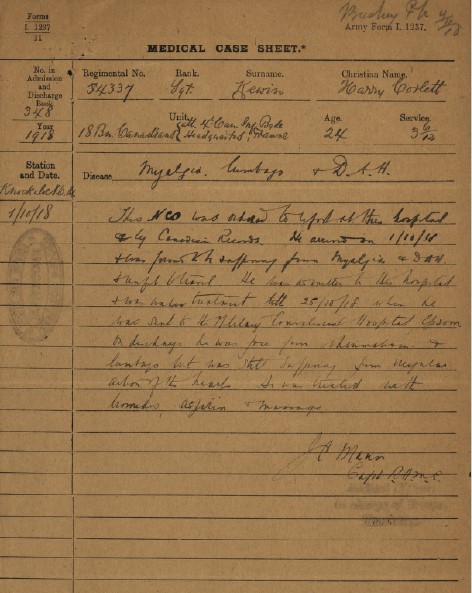 Forms
I. 1237
11
Army Form I. 1237.
MEDICAL CASE SHEET.*
No. in
Admission
and
Discharge
Book.
348
Year
1918
Regimental No.
54337
Rank.
Sgt.
Surname.
Kewin
Christian Name.
Harry Corlett
Unit.
18 Bn. Canadians att. 4th Can. Inf. Bgde
Headquarters, France
Age.
24
Service.
3 6/12
Station
and Date.
1/10/18
Disease.
Myalgia. Lumbago & D.A.H.
This NCO was ordered to report at this hospital
by Canadian Records. He arrived on 1/10/18
& was found to be suffering from Myalgia & DAH
& unfit to travel. He was admitted to this hospital
& was under treatment till 25/10/18 when he
was sent to the Military Convalescent Hospital Epsom
On discharge he was free from rheumatism &
lumbago but was still suffering from irregular
action of the heart. He was treated with
bromides, aspirin & massage
Mann
Capt R.A.M.C.